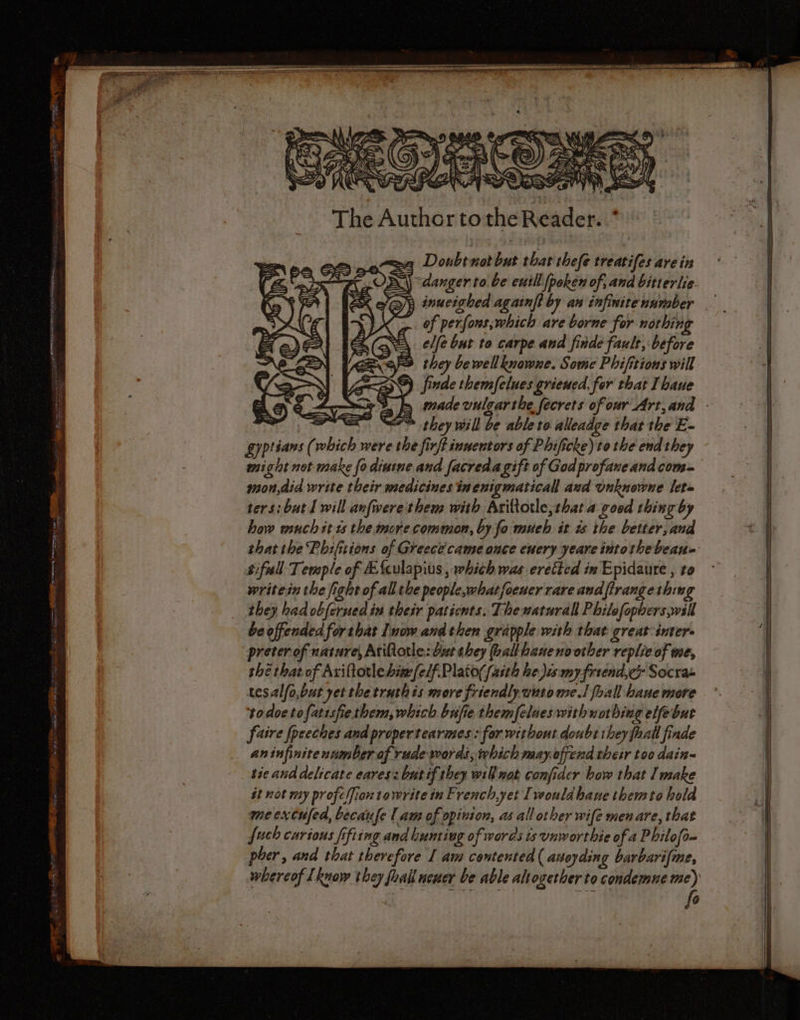 The Author to the Reader.
I Doubt not but that theſe treatiſes are in
danger to be euill ſpoken of, and bitterlie
inueighed againſt by an infinite number
of perſons, which are borne for nothing
elſe but to carpe and finde fault, before
they be well knowne. Some Phiſitions will
finde themſelues grieued, for that I haue
made vulgar the ſecrets of our Art, and
they will be able to alleadge that the E-
gyptians (which were the firſt inuentors of Phiſicke) to the end they
might not make ſo diuine and ſacred a gift of God profane and com-
mon, did write their medicines in enigmaticall and vnknowne let-
ters: but I will anſwere them with Ariſtotle, that a good thing by
how much it is the more common, by ſo much it is the better, and
that the Phiſitions of Greece came once euery yeare into the beau-
tifull Temple of Æſculapius, which was erected in Epidaure, to
write in the ſight of all the people, what ſoeuer rare and ſtrange thing
they had obſerued in their patients. The naturall Philoſophers will
be offended for that I now and then grapple with that great inter-
preter of nature, Ariſtotle: but they ſhall haue no other replie of me,
thē that of Ariſtotle himſelf. Plato (ſaith he) is my friend, & Socra-
tes alſo, but yet the truth is more friendly vnto me. I ſhall haue more
to doe to ſatisfie them, which buſie themſelues with nothing elſe but
faire ſpeeches and proper tearmes: for without doubt they ſhall finde
an infinite number of rude words, which may offend their too dain-
tie and delicate eares: but if they will not conſider how that I make
it not my profeſſion to write in French, yet I would haue them to hold
me excuſed, becauſe I am of opinion, as all other wiſe men are, that
ſuch curious ſifting and hunting of words is vnworthie of a Philoſo-
pher, and that therefore I am contented (auoyding barbariſme,
whereof I know they ſhall neuer be able altogether to condemne me)
ſo